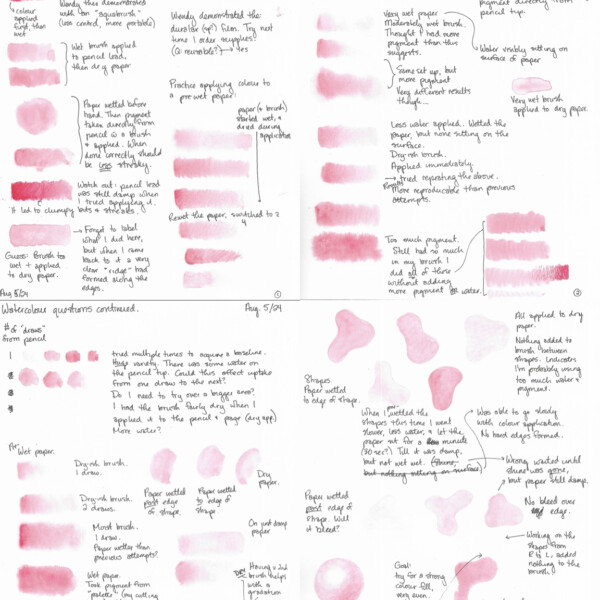 colour
applied
first, then
wet
Wendy then demonstrated
with an "aquabrush"
(less control, more portable)
Wet brush applied
to pencil lead,
then dry paper
Paper wetted before
hand. Then pigment
taken directly from
pencil w a brush
& applied. When
done correctly should
be less streaky.
Watch out: pencil lead
was still damp when
I tried applying it.
It led to clumpy bits & streaks.
Forgot to label
what I did here,
but when I came
back to it a very
clear "ridge" had
formed along the
edges.
Guess: Brush to
wet + applied
to dry paper.
Aug 5/24
Wendy demonstrated the
film. Try next
time I order supplies
(Q reusable?) → Yes
Practice applying colour to
a pre-wet paper.
paper (& brush)
started wet, &
dried during
application
Rewet the paper, switched to 2
4
1
pigment directly from
pencil tip.
Very wet paper
Moderately wet brush
Thought I had more
pigment than this
suggests.
Water visibly sitting on
surface of paper
Same set up, but
more pigment
Very different results
though...
Very wet brush
applied to dry paper.
Less water applied. Wetted the
paper, but none sitting on the
surface.
Dry-ish brush.
Applied immediately.
tried repeating the above.
More reproducable than previous
attempts.
Too much pigment.
Still had so much
in my brush I
did all of these
without adding
more pigment or water.
2
Watercolour questions continued.
Aug. 5/24
# of "draws"
from pencil
1
2
3
4
tried multiple times to acquire a baseline.
Huge variety. There was some water on
the pencil tip. Could this affect uptake
from one draw to the next?
Do I need to try over a bigger area?
I had the brush fairly dry when I
applied it to the pencil & page (dry app)
More water?
Wet paper.
Dry-ish brush.
1 draw.
Dry-ish brush.
2 draws.
Moist brush.
1 draw.
Paper wetter than
previous attempts?
Wet paper.
Took pigment from
"palette" (my cutting
Paper wetted
past edge
of shape.
Paper wetted
to edge of
shape
Dry
paper.
On just damp
paper
Having a 2nd
DRY
brush helps
with a
gradation
Shapes.
Paper wetted
to edge of shape.
All applied to dry
paper.
Nothing added to
brush between
shapes. Indicates
I'm probably using
too much water &
pigment.
When I wetted the
shapes this time I went
slower, less water, & let the
paper sit for a minute
(30 sec?) Till it was damp,
but not wet wet. (Shine,
but nothing sitting on surface)
Was able to go slowly
with colour application.
No hard edges formed.
Wrong, waited until
shine was gone,
but paper still damp.
Paper wetted
past edge of
shape. Will
it bleed?
No bleed over
edge.
Working on the
shapes from
R to L, added
nothing to the
brush.
Goal:
try for a strong
colour fill,
very even.